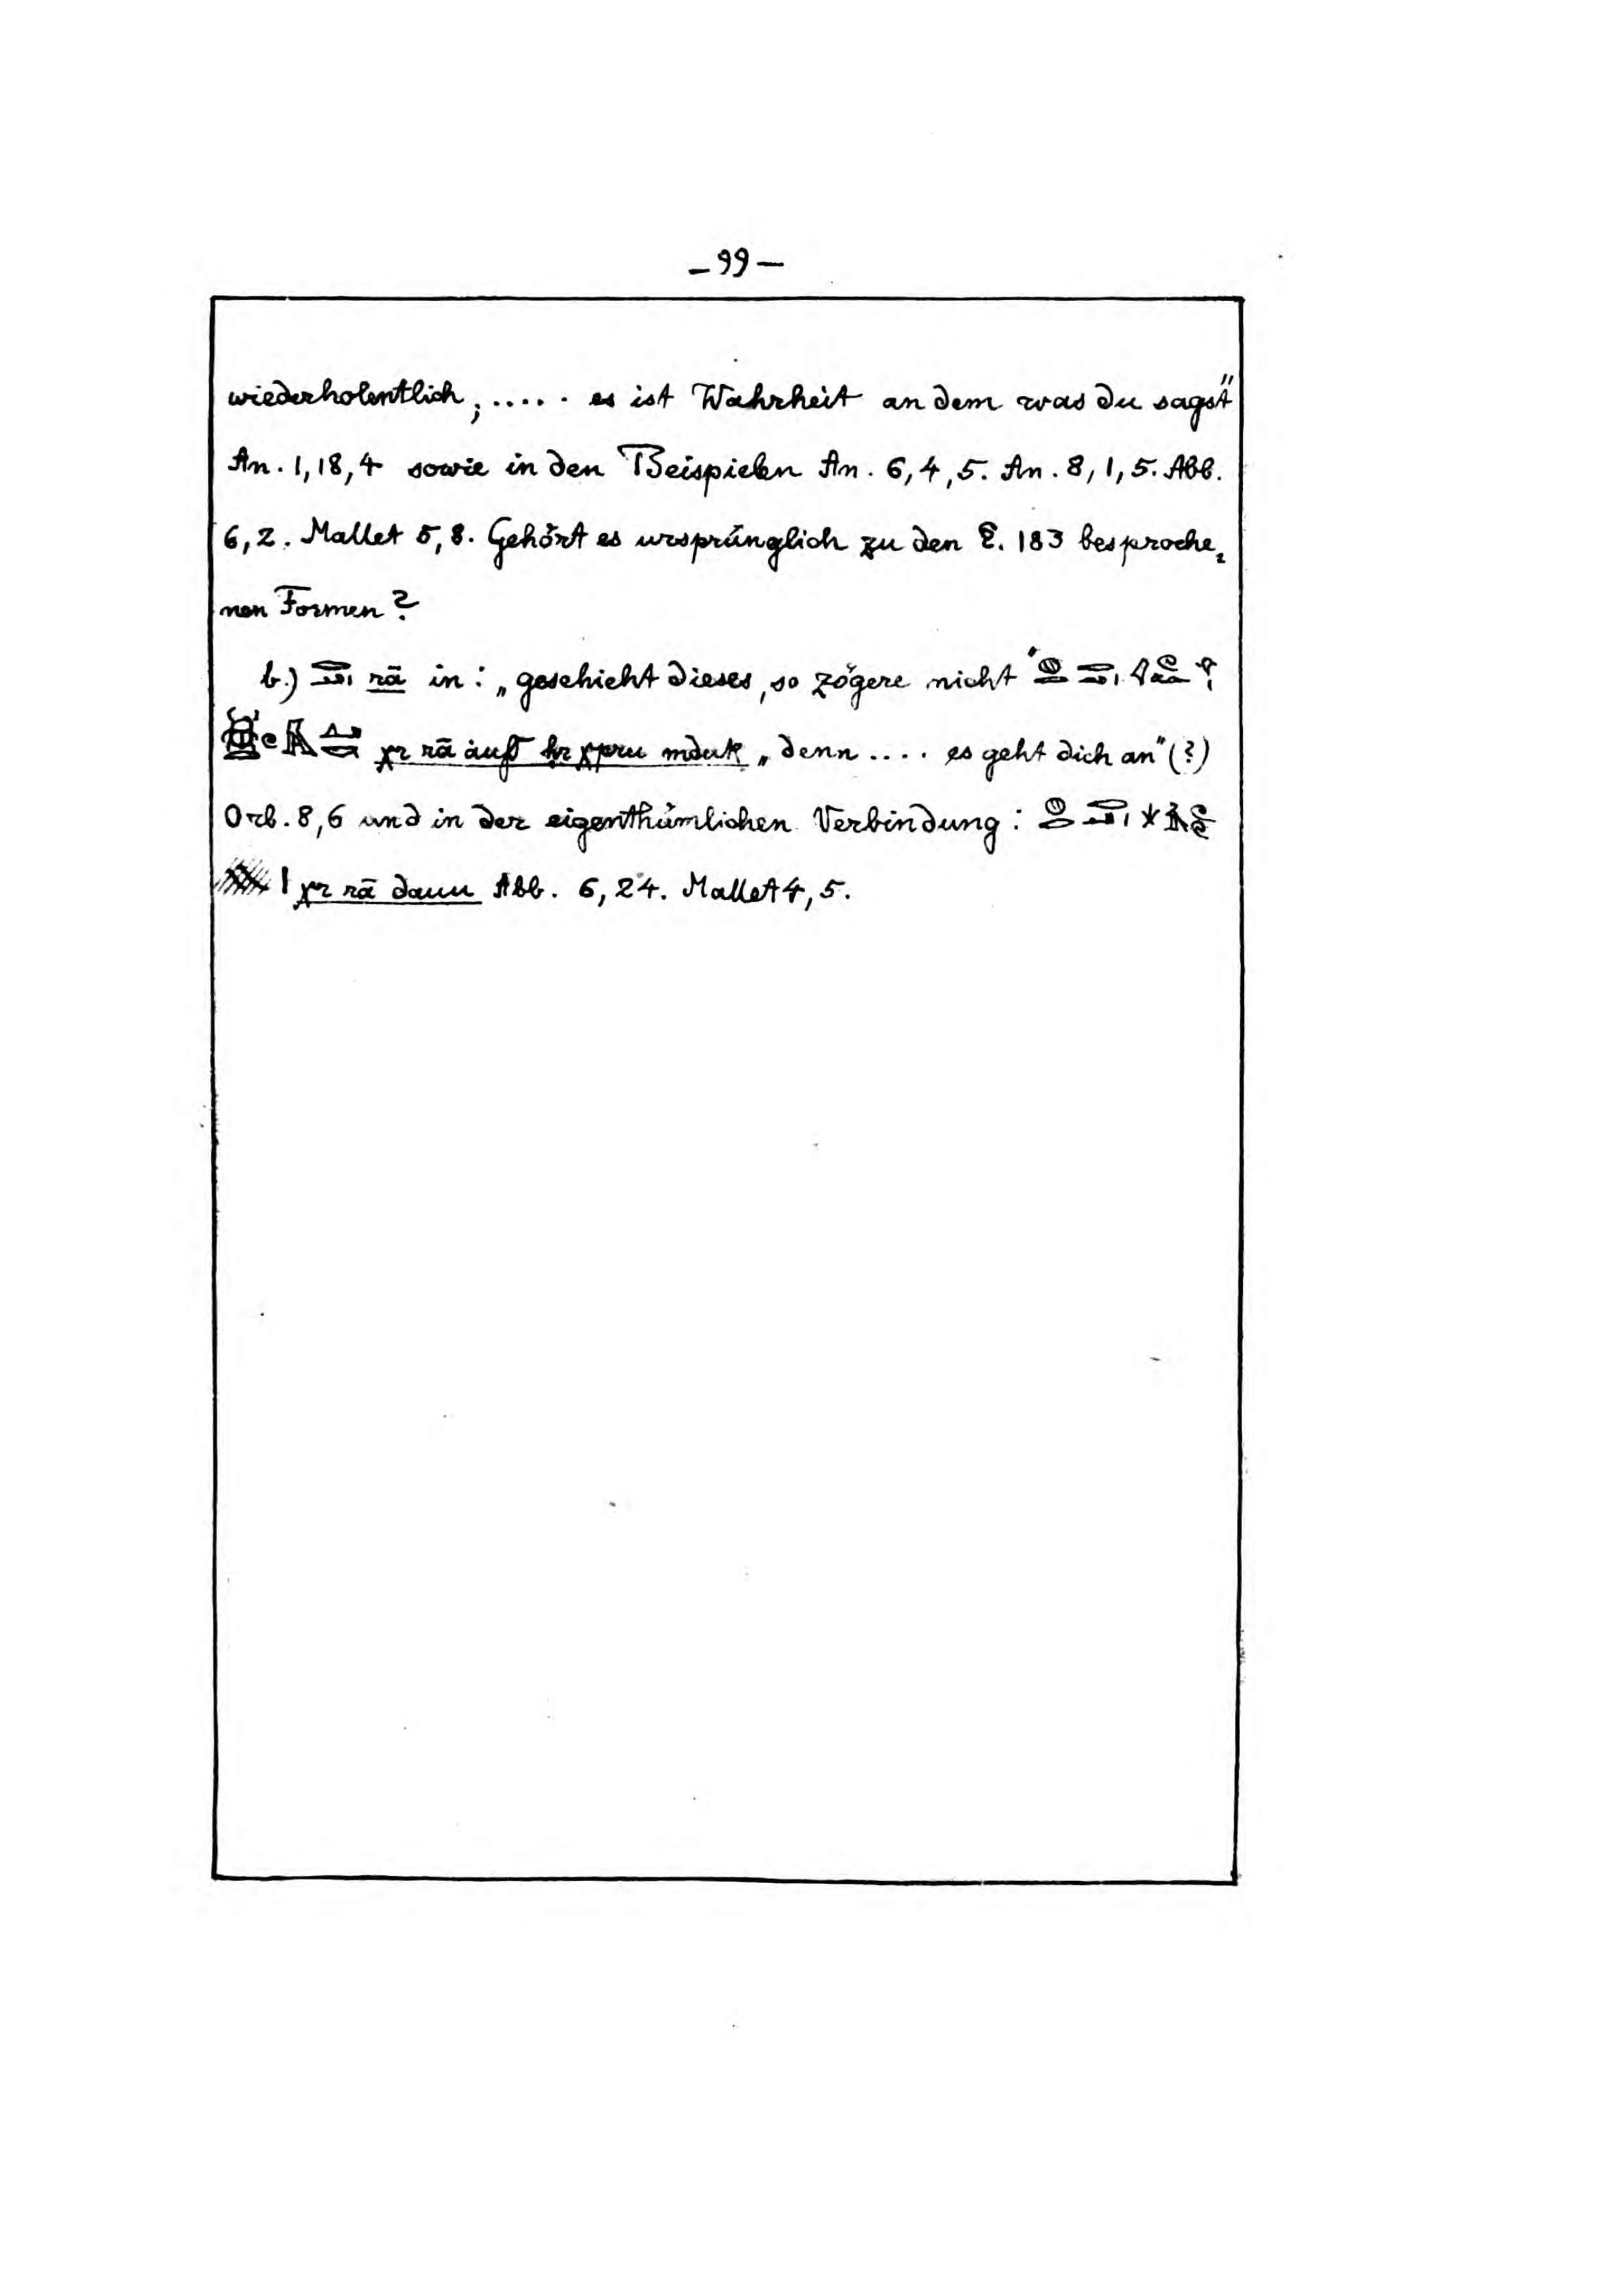 — 99 —
wiederholentlich; ..... es ist Wahrheit an dem was du sagst"
An. 1,18,4 sowie in den Beispielen An. 6,4,5. An. 8,1,5. Abb.
6,2. Mallet 5,8. Gehört es ursprünglich zu den §. 183 besproche⸗
nen Formen?
b.) rā in: „geschieht dieses, so zögere nicht
χr rā àuf hr χpru mduk „denn .... es geht dich an" (?)
Orb. 8,6 und in der eigenthümlichen Verbindung:
χr rā dauu Abb. 6,24. Mallet 4,5.